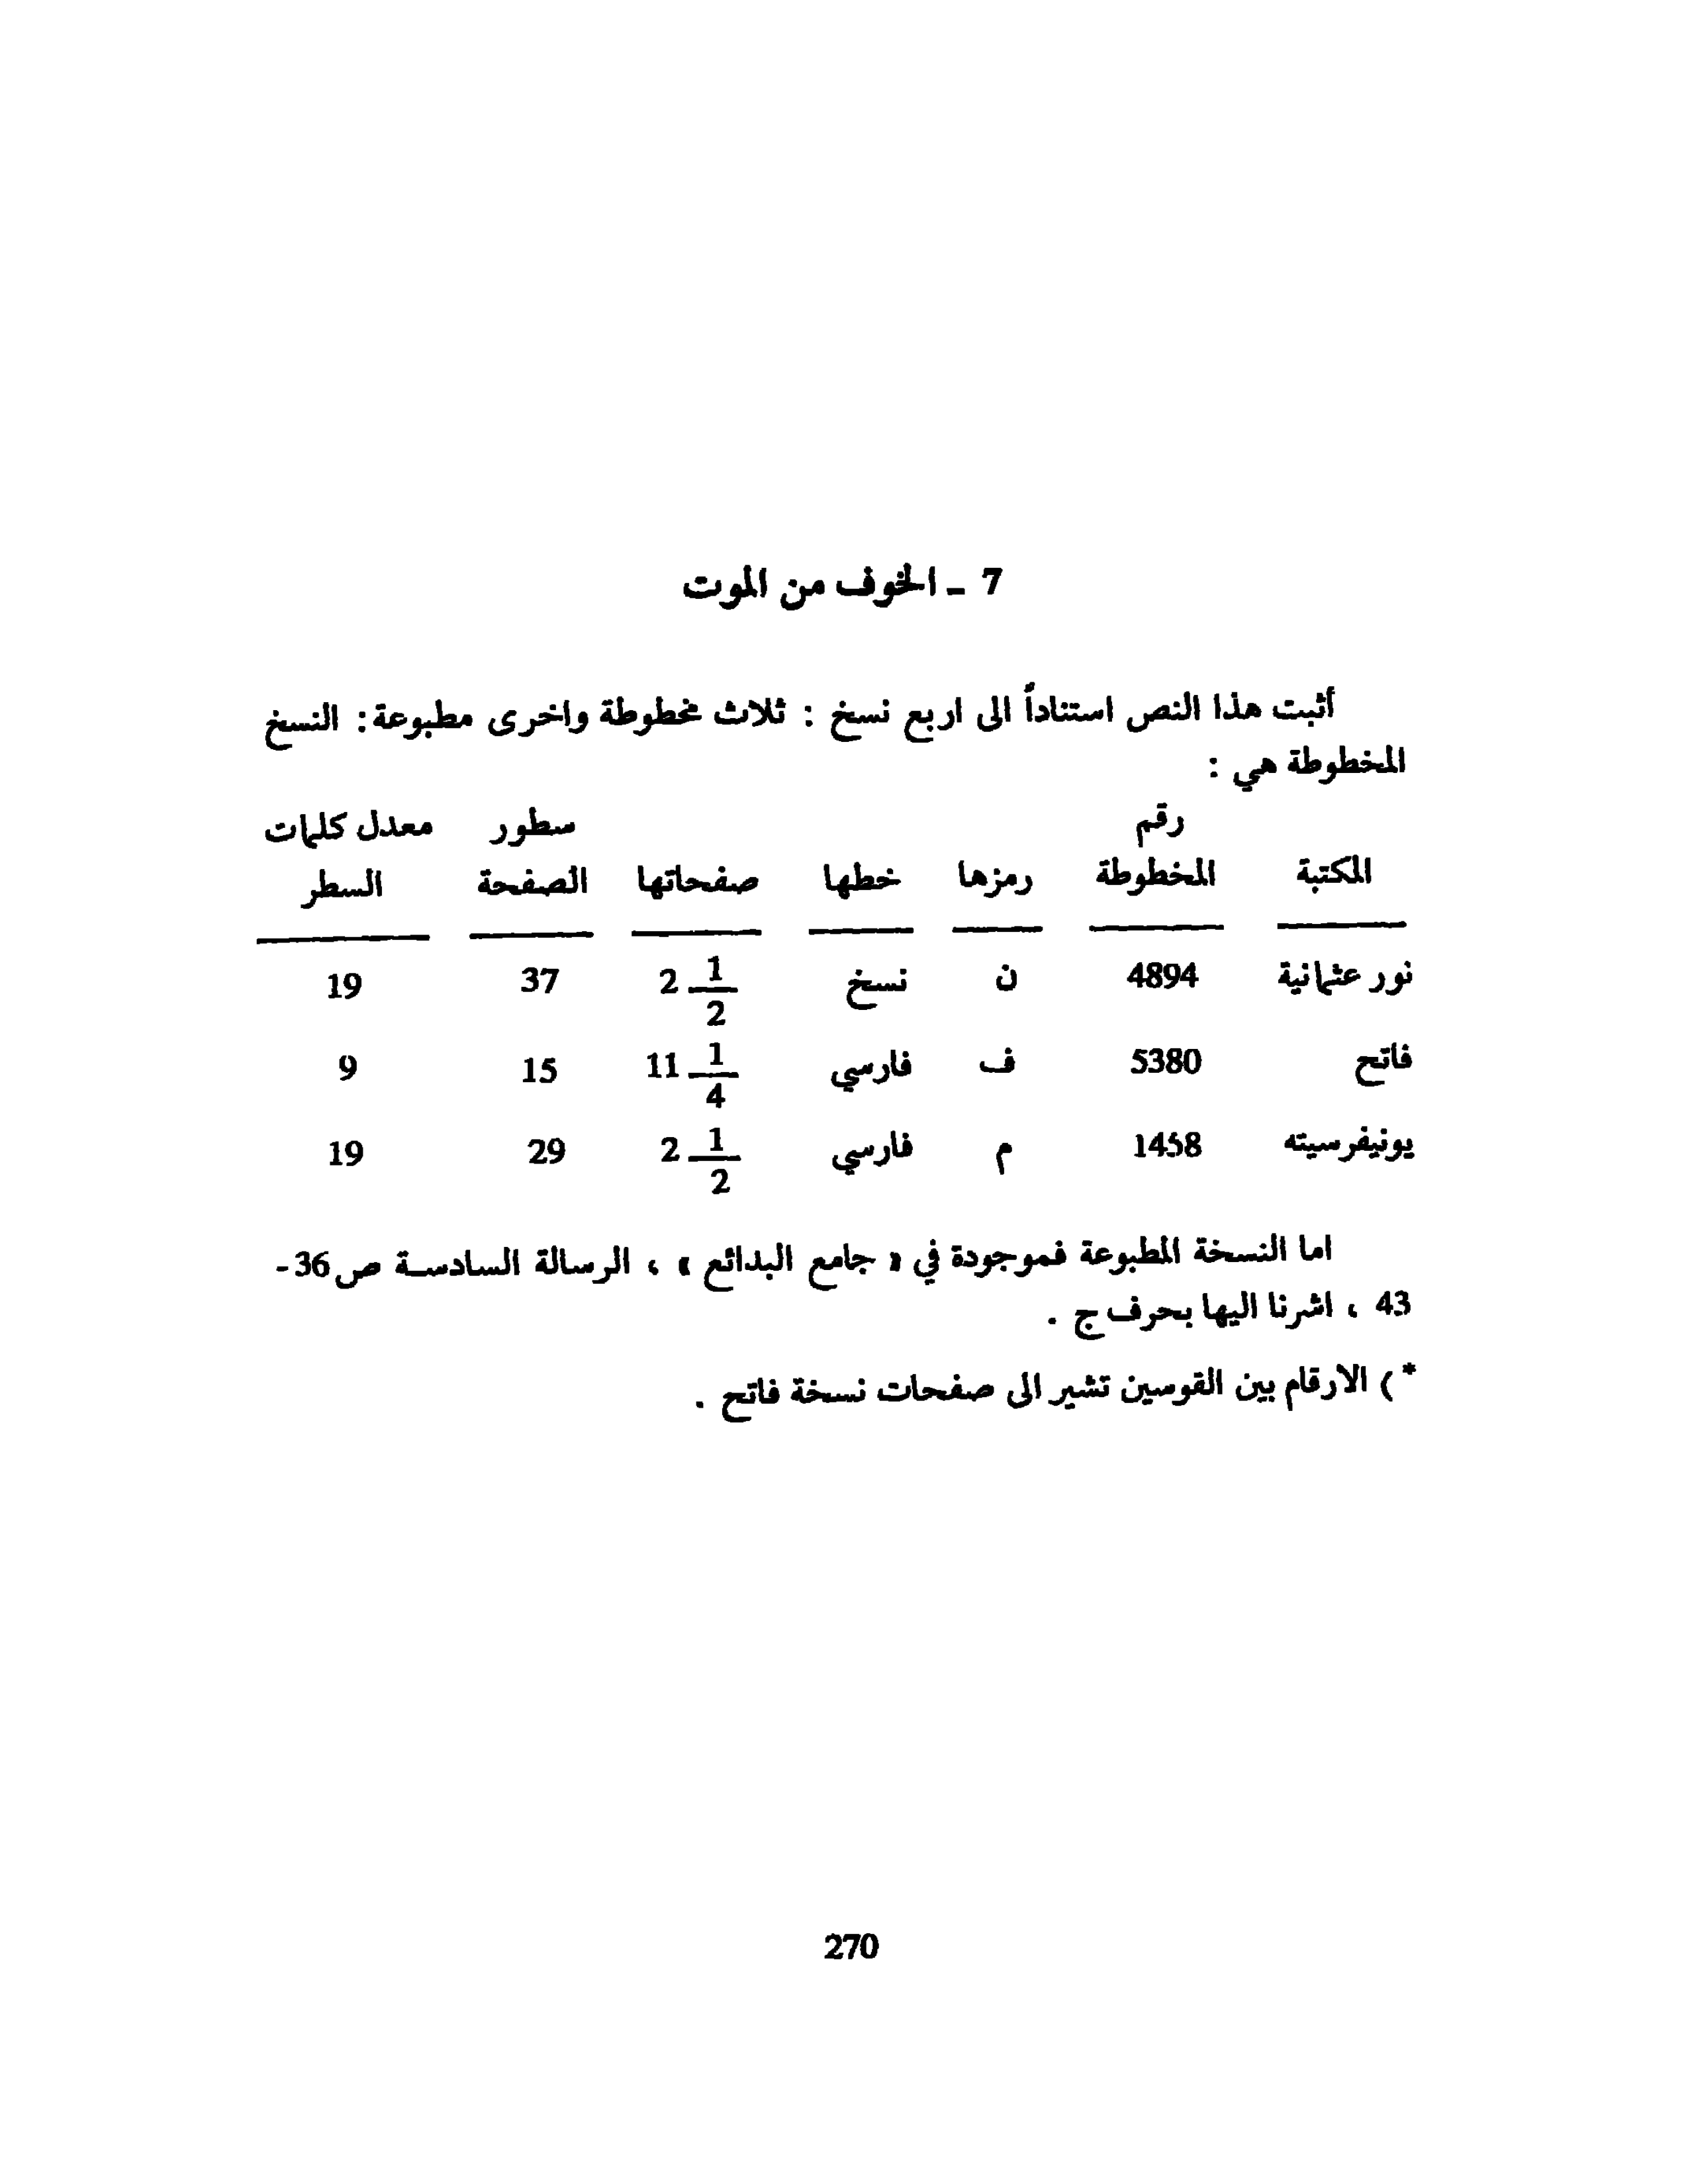 7 ـ الخوف من الموت
أثبت هذا النص استناداً الى اربع نسخ : ثلاث مخطوطة واخرى مطبوعة : النسخ
المخطوطة هي :
رقم سطور معدل كلمات
المكتبة المخطوطة رمزها خطها صفحاتها الصفحة السطر
نور عثمانية 4894 ن نسخ 2 1/2 37 19
فاتح 5380 ف فارسي 11 1/4 15 9
يونيفرسيته 1458 م فارسي 2 1/2 29 19
اما النسخة المطبوعة فموجودة في « جامع البدائع » ، الرسالة السادسة ص 36 -
43 ، اشرنا اليها بحرف ج .
* ) الارقام بين القوسين تشير الى صفحات نسخة فاتح .
270